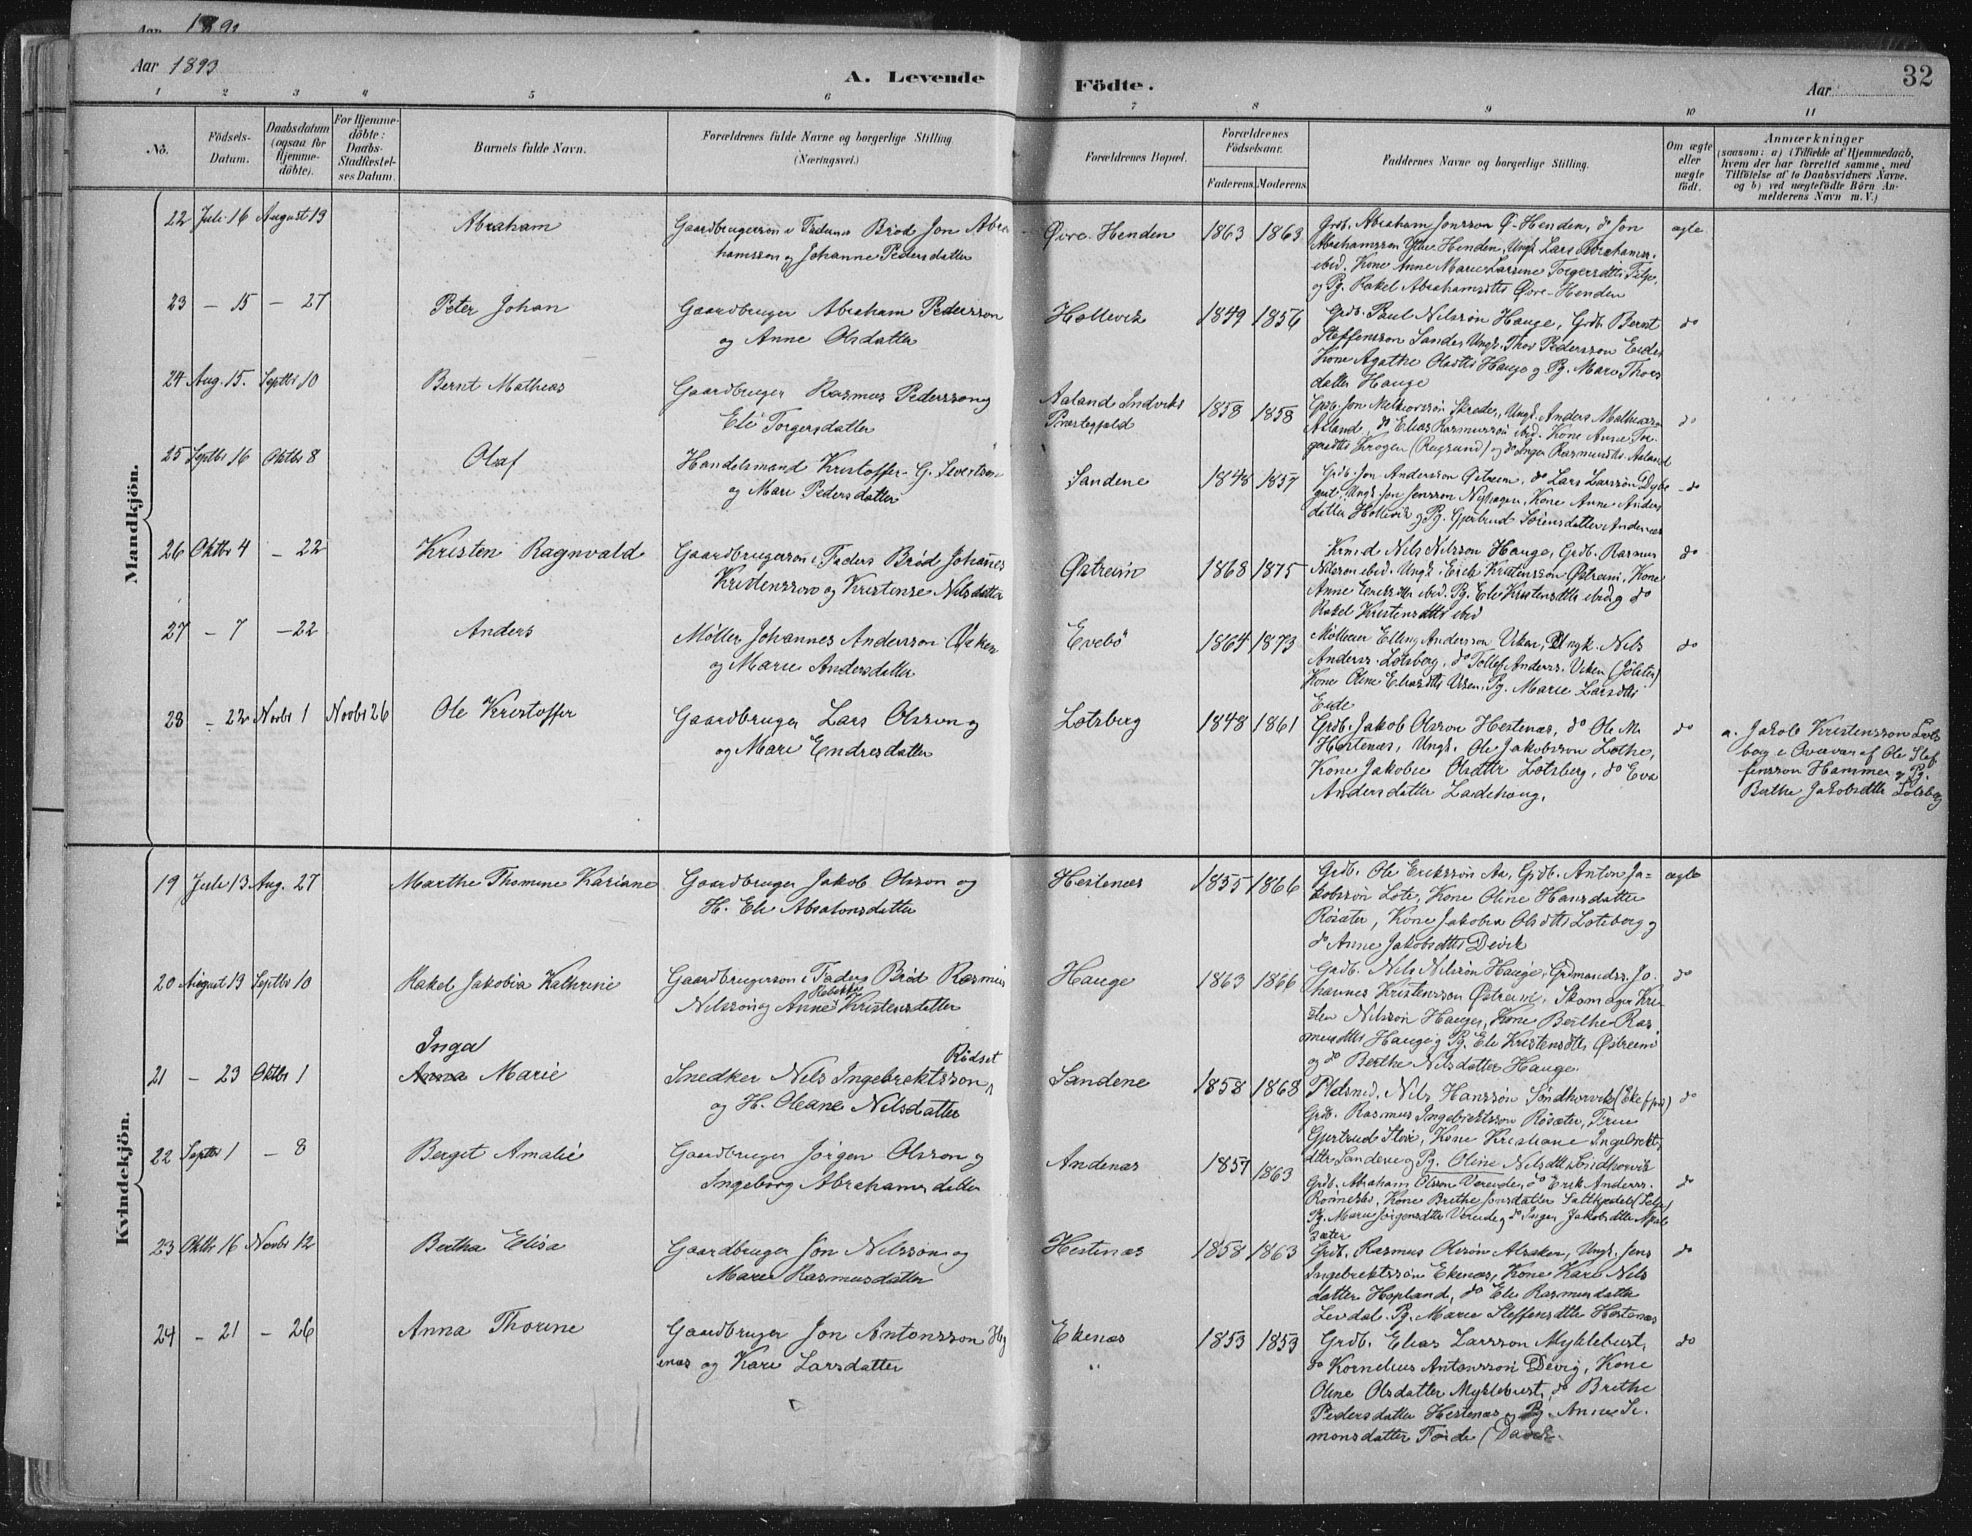 Aar 1892
Aar 1893
A. Levende Födte.
Aar
32
1 2 3 4 5 6 7 8 9 10 11
No.
Födsels-Datum.
Daabsdatum (ogsaa for Hjemme-döbte).
For Hjemme-döbte: Daabs-Stadfæstel-ses Datum.
Barnets fulde Navn.
Forældrenes fulde Navne og borgerlige Stilling (Næringsvei.)
Forældrenes Bopæl.
Forældrenes Födselsaar.
Faderens. Moderens.
Faddernes Navne og borgerlige Stilling.
Om ægte eller uægte födt.
Anmærkninger
(saasom: a) i Tilfælde af Hjemmedaab, hvem der har forrettet samme, med Tilföielse af to Daabsvidners Navne. og b) ved uægtefödte Börn An-melderens Navn m. V.)
Mandkjön.
22 Juli 16 August 19 Abraham
Gaardbrugersøn i Faderens Brød Jon Abra
hamsson og Johanne Pedersdatter
Øvre-Henden 1863 1863
Grdb. Abraham Jonsson Ø-Henden, do Jon
Abrahamsson Ytre Henden, Ungk. Lars Abrahamss.
ibid. Kone Anne Marie Larsine Torgersdtr
og Pg. Rakel Abrahamsdtr Øvre-Henden
ægte
23 - 15 - 27 Peter Johan
Gaardbruger Abraham Pedersson
og Anne Olsdatter
Hollevik 1849 1856
Grdb. Paul Nilsson Hauge, Grdb. Bernt
Steffensson Sande, Ungk. Thor Pedersson Eide,
Kone Agathe Olsdtr Hauge og Pg. Mari Thors
datter Hauge
do
24 Aug. 15. Septbr 10 Bernt Mathias
Gaardbruger Rasmus Pedersson og
Eli Torgersdatter
Aaland Indviks
Præstegjeld
1858 1858
Grdb. Jon Melkiorsson Skrede, Ungk. Anders Mathiass.
Aaland, do Elias Rasmusson ibid. Kone Anne Tor-
geirsdtr Krogen (Rugsund) og do Inger Rasmusdtr. Aaland
do
25 Septbr 16 Oktbr 8 Olaf
Handelsmand Kristoffer G. Sivertsen
og Mari Pedersdatter
Sandene 1848 1857
Grdb. Jon Andersson Østreim, do Lars Larsson
Ungk. Jon Jonsson Nyhagen, Kone Anne Anders
datter Hollevik og Pg. Gjertrud Sørensdatter Andenæs
do
26 Oktbr 4 - 22 Kristen Ragnvald
Gaardbrugersøn i Faders Brød Johannes
Kristensson og Kristense Nilsdatter
Østreim 1868 1875
Krmd Nils Nilsson Hauge, Grdb. Rasmus
Nilsson ibid. Ungk. Erik Kristensson Østreim, Kone
Anne Eriksdtr ibid. Pg. Eli Kristensdtr ibid og do
Rakel Kristensdtr ibid
do
27 - 7 - 22 Anders
Møller Johannes Andersson
og Marie Andersdatter
Evebø 1864 1873
Møller Elling Andersson Viken, Ungk. Nils
Anderss. Lotsberg, do Tollef Anderss. Viken (Jölster)
Kone Oline Eliasdtr Viken, Pg. Marie Larsdtr
Eide
do
28 - 22 Novbr 1 Novbr 26 Ole Kristoffer
Gaardbruger Lars Olsson og
og Mari Endresdatter
Lotsberg 1848 1861
Grdb. Jakob Olsson Hestenæs, do Ole M.
Hestenæs, Ungk. Ole Jakobsson Lothe,
Kone Jakobie Olsdtr Lotsberg, do Eva
Andersdatter Ladehaug.
do
a. Jakob Kristensson Lots
berg i Overvær af Ole Stef
fensson Hammer og Pg.
Berthe Jakobsdtr Lotsberg
Kvindekjön.
19 Juli 13 Aug. 27 Marthe Thomine Kariane
Gaardbruger Jakob Olsson og
H. Eli Absalonsdatter
Hestenæs 1855 1866
Grdb. Ole Eriksson Aa, Grdb. Anton Ja-
kobsson Lote, Kone Oline Hansdatter
Rosæter, Kone Jakobia Olsdtr Lotsberg og
do Anne Jakobsdtr Devik
ægte
20 August 19 Septbr 10 Rakel Jakobia Kathrine
Gaardbrugersøn i Faders Brød Rasmus
Rebekka
Nilsson og Anne Kristensdatter
Hauge 1863 1866
Grdb. Nils Nilsson Hauge, Grdmandss. Jo-
hannes Kristensson Østreim, Skomager Kri-
sten Nilsson Hauge, Kone Berthe Ras
musdtr Hauge og Pg. Eli Kristensdtr Østreim
og do Berthe Nilsdatter Hauge.
do
Inga
21 - 23 Oktbr 1 Anna Marie
Rødset
Snedker Nils Ingebrektsson
og H. Oleane Nilsdatter
Sandene 1858 1868
Pladsmd. Nils Hansson Söndhorvik
Grdb. Rasmus Ingebrektsson Rosæter, Frue
Gjertrud Kone Kristiane Ingebrekt
dtr Sandene og Pg. Oline Nilsdtr Sindhorvik
do
22 Septbr 1 - 8 Berget Amalie
Gaardbruger Jörgen Olsson og
Ingeborg Abrahamsdatter
Andenæs 1857 1863
Grdb. Abraham Olsson Vereide, do Erik Anderss.
Kone Brithe Jonsdatter
Pg. Marie Jörgensdtr Vereide og do Inger Jakobsdtr
sæter
do
23 Oktbr 16 Novbr 12 Bertha Elisa
Gaardbruger Jon Nilsson og
Mari Rasmusdatter
Hestenæs 1858 1863
Grdb. Rasmus Olsson Alsaker, Ungk. Jens
Ingebrektsson Ekenæs, Kone Kari Nils
datter Hopland, do Eli Rasmusdatter
Pg. Marie Steffensdtr Hestenæs
do
24 - 21 - 26 Anna Thorine
Gaardbruger Jon Antonsson Hy
enæs og Kari Larsdatter
Ekenæs 1853 1853
"
Grdb. Elias Larsson Myklebust,
do Kornelius Antonsson Devig, Kone
Oline Olsdatter Myklebust, do Brithe
Pedersdatter Hestenæs og Pg. Anne Si-
monsdatter Förde (Davik.
do